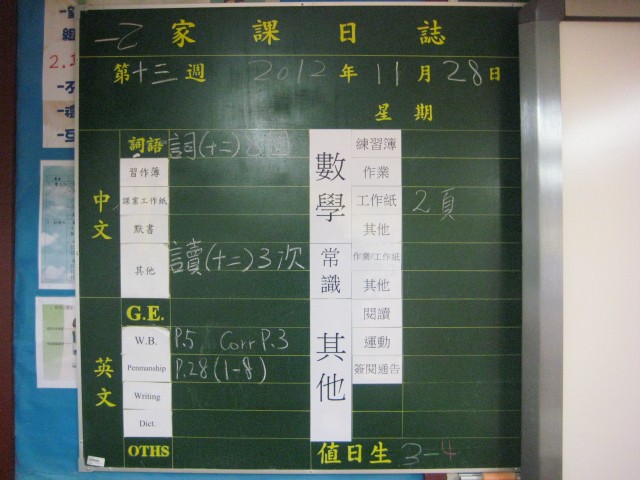 一乙 家課日誌
第十三週 2012年11月28日
星期
中文
詞語 詞(十二)
習作簿
課業工作紙
默書
其他 讀(十二)3次
英文
G.E.
W.B. P.5 Corr P.3
Penmanship P.28(1-8)
Writing
Dict.
OTHS
數學
練習簿
作業
工作紙 2頁
其他
常識
作業/工作紙
其他
其他
閱讀
運動
簽閱通告
值日生 3-4